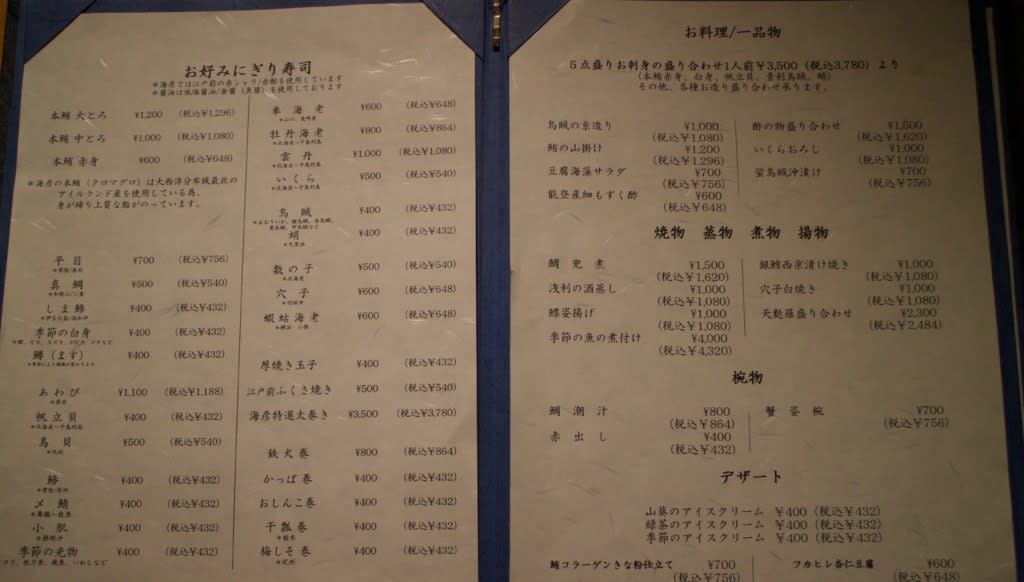 お好みにぎり寿司
＊海彦では江戸前の赤シャリ/赤酢を使用しています
＊醤油は低塩醤油/余醤(魚醤)を使用しております
本鮪 大とろ ¥1,200 (税込¥1,296)
本鮪 中とろ ¥1,000 (税込¥1,080)
本鮪 赤身 ¥600 (税込¥648)
＊海彦の本鮪(クロマグロ)は大西洋分布域最北の
アイルランド産を使用している為、
身が締り上質な脂がのっています。
平目 ¥700 (税込¥756)
真鯛 ¥500 (税込¥540)
しま鯵 ¥400 (税込¥432)
季節の白身 ¥400 (税込¥432)
鱒(ます) ¥400 (税込¥432)
あわび ¥1,100 (税込¥1,188)
帆立貝 ¥400 (税込¥432)
＊北海道〜千島列島
鳥貝 ¥500 (税込¥540)
＊九州
鯵 ¥400 (税込¥432)
〆鯖 ¥400 (税込¥432)
小肌 ¥400 (税込¥432)
季節の光物 ¥400 (税込¥432)
車海老 ¥600 (税込¥648)
牡丹海老 ¥800 (税込¥864)
＊北海道〜千島列島
雲丹 ¥1,000 (税込¥1,080)
＊北海道〜千島列島
いくら ¥500 (税込¥540)
＊北海道〜千島列島
烏賊 ¥400 (税込¥432)
蛸 ¥400 (税込¥432)
＊久里浜
数の子 ¥500 (税込¥540)
＊北海道
穴子 ¥600 (税込¥648)
＊羽田沖
蝦蛄海老 ¥600 (税込¥648)
厚焼き玉子 ¥400 (税込¥432)
江戸前ふくさ焼き ¥500 (税込¥540)
海彦特選太巻き ¥3,500 (税込¥3,780)
鉄火巻 ¥800 (税込¥864)
かっぱ巻 ¥400 (税込¥432)
おしんこ巻 ¥400 (税込¥432)
干瓢巻 ¥400 (税込¥432)
＊栃木
梅しそ巻 ¥400 (税込¥432)
＊紀州
お料理/一品物
5点盛りお刺身の盛り合わせ1人前¥3,500 (税込3,780) より
(本鮪赤身、白身、帆立貝、青利烏賊、蛸)
その他、各種お造り盛り合わせ承ります。
烏賊の糸造り ¥1,000
(税込¥1,080)
鮪の山掛け ¥1,200
(税込¥1,296)
豆腐海藻サラダ ¥700
(税込¥756)
能登産細もずく酢 ¥600
(税込¥648)
酢の物盛り合わせ ¥1,500
(税込¥1,620)
いくらおろし ¥1,000
(税込¥1,080)
蛍烏賊沖漬け ¥700
(税込¥756)
焼物 蒸物 煮物 揚物
鯛兜煮 ¥1,500
(税込¥1,620)
浅利の酒蒸し ¥1,000
(税込¥1,080)
鰈姿揚げ ¥1,000
(税込¥1,080)
季節の魚の煮付け ¥4,000
(税込¥4,320)
銀鱈西京漬け焼き ¥1,000
(税込¥1,080)
穴子白焼き ¥1,000
(税込¥1,080)
天麩羅盛り合わせ ¥2,300
(税込¥2,484)
椀物
鯛潮汁 ¥800
(税込¥864)
赤出し ¥400
(税込¥432)
蟹姿椀 ¥700
(税込¥756)
デザート
山葵のアイスクリーム ¥400 (税込¥432)
緑茶のアイスクリーム ¥400 (税込¥432)
季節のアイスクリーム ¥400 (税込¥432)
鮪コラーゲンきな粉仕立て ¥700
(税込¥756)
フカヒレ杏仁豆腐 ¥600
(税込¥648)